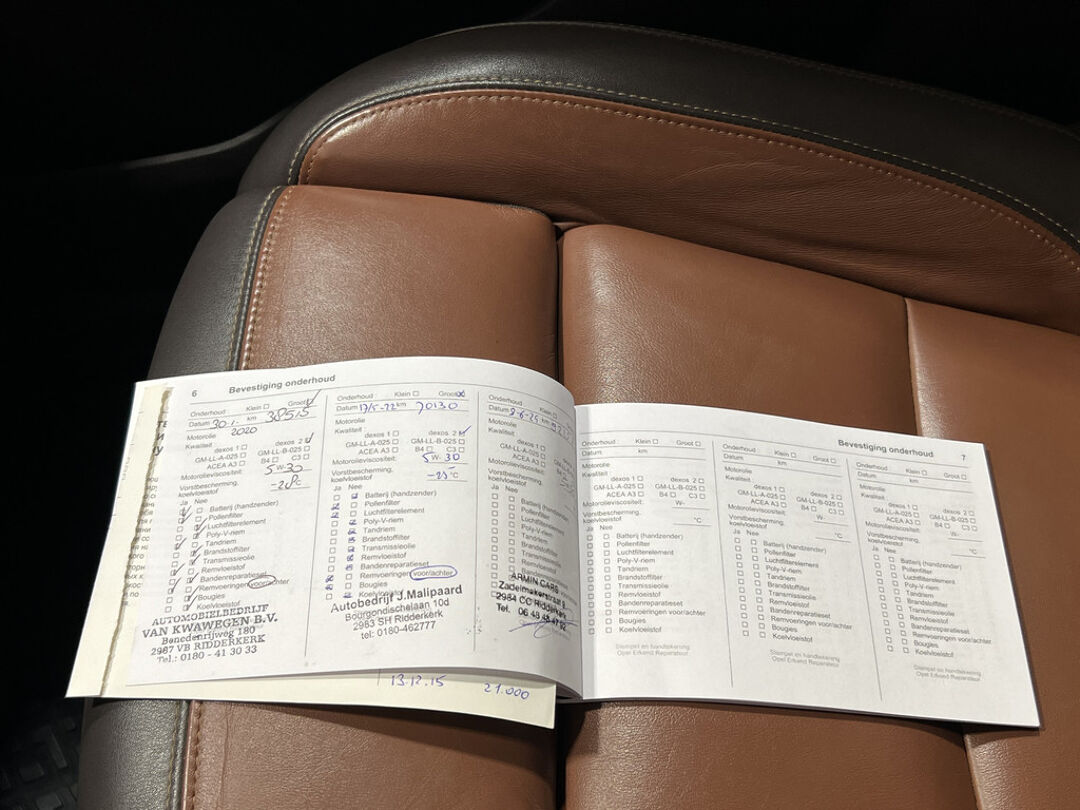 6 Bevestiging onderhoud
Onderhoud Klein Groot
Datum 30.1. km 38515
2020
Motorolie
Kwaliteit:
dexos 1 dexos 2
GM-LL-A-025 GM-LL-B-025
ACEA A3 B4 C3
Motorolieviscositeit: 5W-30
Vorstbescherming,
koelvloeistof -28°C
Ja Nee
Batterij (handzender)
Pollenfilter
Luchtfilterelement
Poly-V-riem
Tandriem
Brandstoffilter
Transmissieolie
Remvloeistof
Bandenreparatieset
Remvoeringen voor/achter
Bougies
Koelvloeistof
AUTOMOBIELBEDRIJF
VAN KWAWEGEN B.V.
Benedenrijweg 180
2987 VB RIDDERKERK
Tel.: 0180 - 41 30 33
Onderhoud Klein Groot
Datum 17/5-22 km 70130
Motorolie
Kwaliteit:
dexos 1 dexos 2
GM-LL-A-025 GM-LL-B-025
ACEA A3 B4 C3
Motorolieviscositeit: 5W-30
Vorstbescherming,
koelvloeistof -25°C
Ja Nee
Batterij (handzender)
Pollenfilter
Luchtfilterelement
Poly-V-riem
Tandriem
Brandstoffilter
Transmissieolie
Remvloeistof
Bandenreparatieset
Remvoeringen voor/achter
Bougies
Koelvloeistof
Autobedrijf J.Malipaard
Bourgondischelaan 10d
2983 SH Ridderkerk
tel: 0180-462777
Onderhoud Klein
Datum km
Motorolie
Kwaliteit:
dexos 1
GM-LL-A-025
ACEA A3
Motorolieviscositeit:
Vorstbescherming,
koelvloeistof
Ja Nee
Batterij
Pollenfilter
Poly-V-riem
Tandriem
ARMIN CARS
Zadelmakerstraat
2984 CC Ridderkerk
Tel. 06
13.12.15 21.000
Bevestiging onderhoud 7
Onderhoud Klein Groot
Datum km
Motorolie
Kwaliteit:
dexos 1 dexos 2
GM-LL-A-025 GM-LL-B-025
ACEA A3 B4 C3
Motorolieviscositeit: W-
Vorstbescherming,
koelvloeistof °C
Ja Nee
Batterij (handzender)
Pollenfilter
Luchtfilterelement
Poly-V-riem
Tandriem
Brandstoffilter
Transmissieolie
Remvloeistof
Bandenreparatieset
Remvoeringen voor/achter
Bougies
Koelvloeistof
Stempel en handtekening
Opel Erkend Reparateur
Onderhoud Klein Groot
Datum km
Motorolie
Kwaliteit:
dexos 1 dexos 2
GM-LL-A-025 GM-LL-B-025
ACEA A3 B4 C3
Motorolieviscositeit: W-
Vorstbescherming,
koelvloeistof °C
Ja Nee
Batterij (handzender)
Pollenfilter
Luchtfilterelement
Poly-V-riem
Tandriem
Brandstoffilter
Transmissieolie
Remvloeistof
Bandenreparatieset
Remvoeringen voor/achter
Bougies
Koelvloeistof
Stempel en handtekening
Opel Erkend Reparateur
Onderhoud Klein Groot
Datum km
Motorolie
Kwaliteit:
dexos 1 dexos 2
GM-LL-A-025 GM-LL-B-025
ACEA A3 B4 C3
Motorolieviscositeit: W-
Vorstbescherming,
koelvloeistof °C
Ja Nee
Batterij (handzender)
Pollenfilter
Luchtfilterelement
Poly-V-riem
Tandriem
Brandstoffilter
Transmissieolie
Remvloeistof
Bandenreparatieset
Remvoeringen voor/achter
Bougies
Koelvloeistof
Stempel en handtekening
Opel Erkend Reparateur